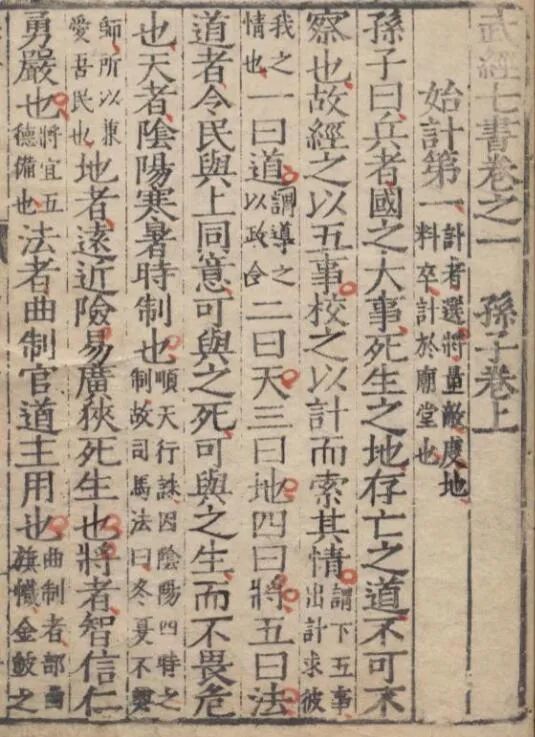 武經七書卷之一 孫子卷上
始計第一計者選將量敵度地料卒計於廟堂也
孫子曰兵者國之大事死生之地存亡之道不可不
察也故經之以五事校之以計而索其情謂下五事出計求彼
我之情也一曰道謂導之以政令二曰天三曰地四曰將五曰法
道者令民與上同意可與之死可與之生而不畏危
也天者陰陽寒暑時制也順天行誅因陰陽四時之制故司馬法曰冬夏不興
師所以兼愛吾民也地者遠近險易廣狹死生也將者智信仁
勇嚴也將宜五德備也法者曲制官道主用也曲制者部曲旗幟金鼓之